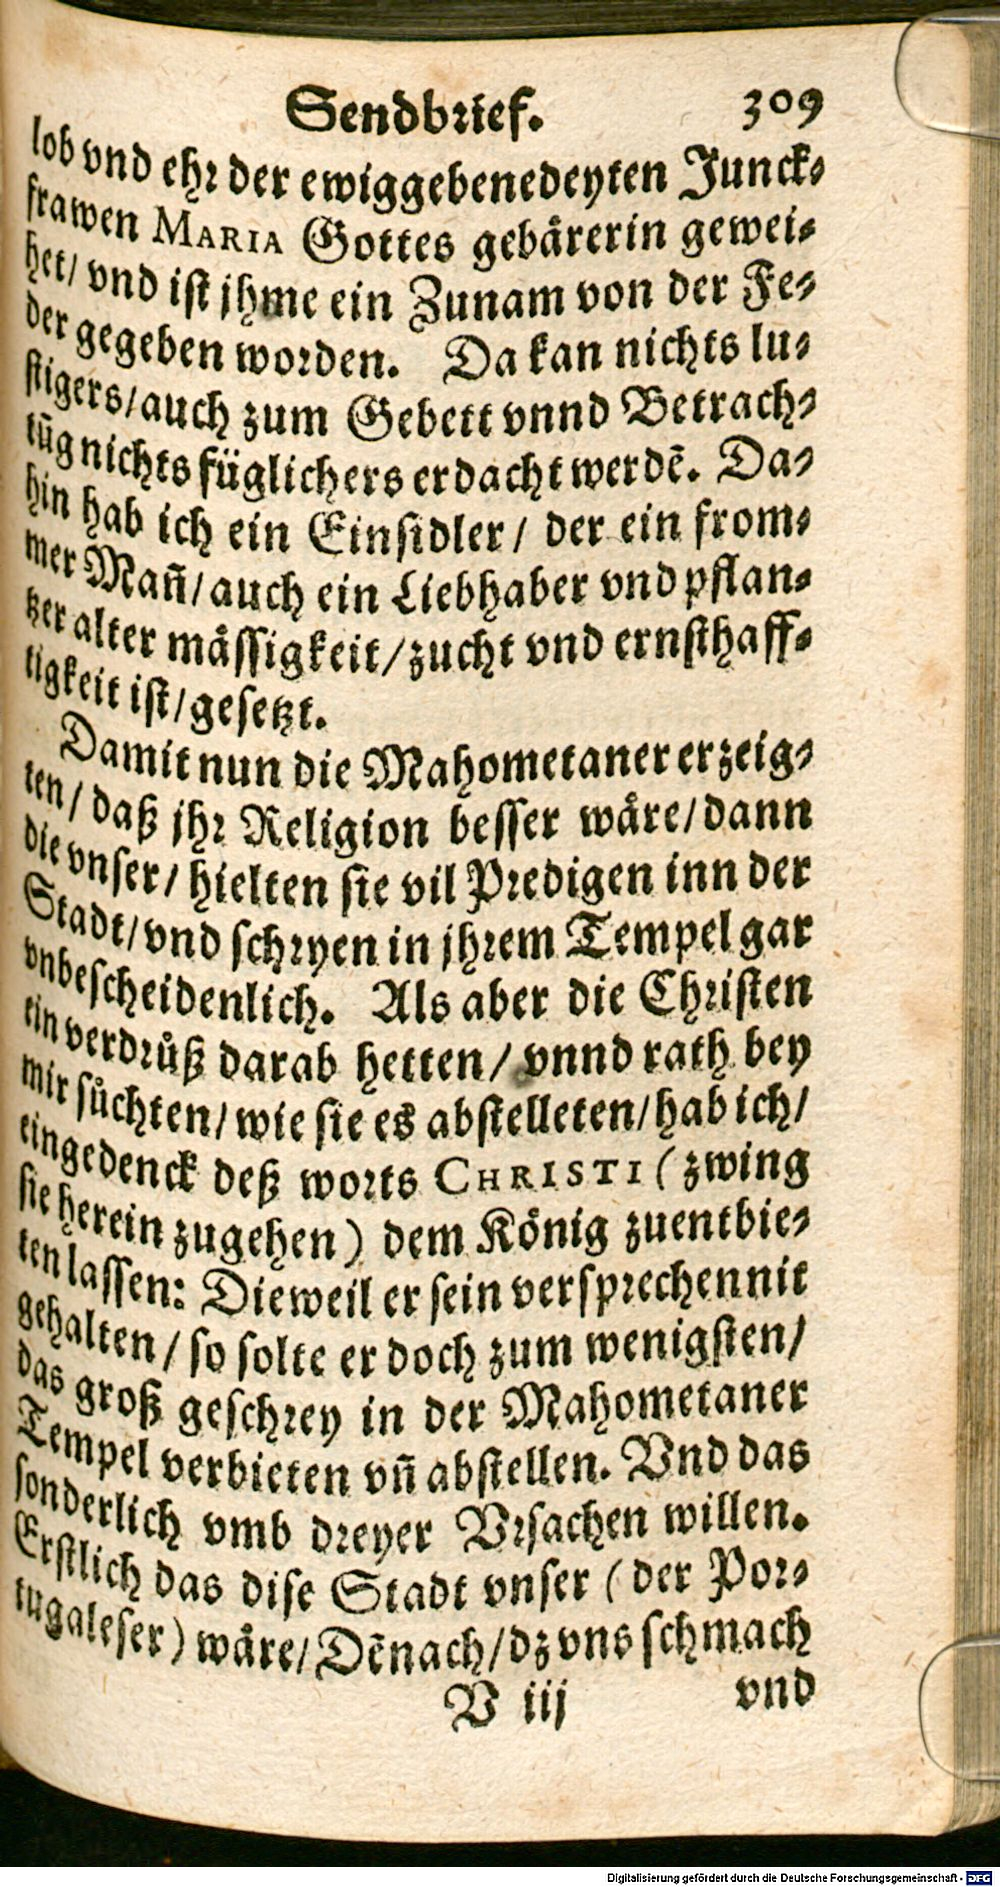 Sendbrief. 309
lob vnd ehr der ewiggebenedeyten Junck-
frawen MARIA Gottes gebårerin gewei-
het/ vnd ist jhme ein Zunam von der Fe-
der gegeben worden. Da kan nichts lu-
stigers/auch zum Gebett vnnd Betrach-
tũg nichts füglichers erdacht werdẽ. Da-
hin hab ich ein Einsidler/ der ein from-
mer Mañ/auch ein Liebhaber vnd pflan-
tzer alter mässigkeit/zucht vnd ernsthaff-
tigkeit ist/gesetzt.
Damit nun die Mahometaner erzeig-
ten/ daß jhr Religion besser wåre/dann
die vnser/ hielten sie vil Predigen inn der
Stadt/vnd schryen in jhrem Tempel gar
vnbescheidenlich. Als aber die Christen
ein verdrůß darab hetten/ vnnd rath bey
mir sůchten/wie sie es abstelleten/hab ich/
eingedenck deß worts CHRISTI (zwing
sie herein zugehen) dem König zuentbie-
ten lassen: Dieweil er sein versprechen nit
gehalten/ so solte er doch zum wenigsten/
das groß geschrey in der Mahometaner
Tempel verbieten vñ abstellen. Vnd das
sonderlich vmb dreyer Vrsachen willen.
Erstlich das dise Stadt vnser (der Por-
tugaleser) wåre/Dẽnach/dz vns schmach
V iij vnd
Digitalisierung gefördert durch die Deutsche Forschungsgemeinschaft - DFG